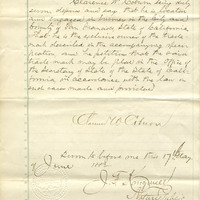 Clarence W. Coburn being duly
sworn deposes and says that he is a
and engaged in business in the City and
County of San Francisco State of California
that he is the exclusive owner of the trade
mark described in the accompanying
and he petitions that the said trade
mark may be filed in the Office of
the Secretary of State of the State of Cali-
fornia in accordance with the law in
such cases made and provided
Clarence W. Coburn
Sworn to before me this 17th day
of June
J. F.
Notary